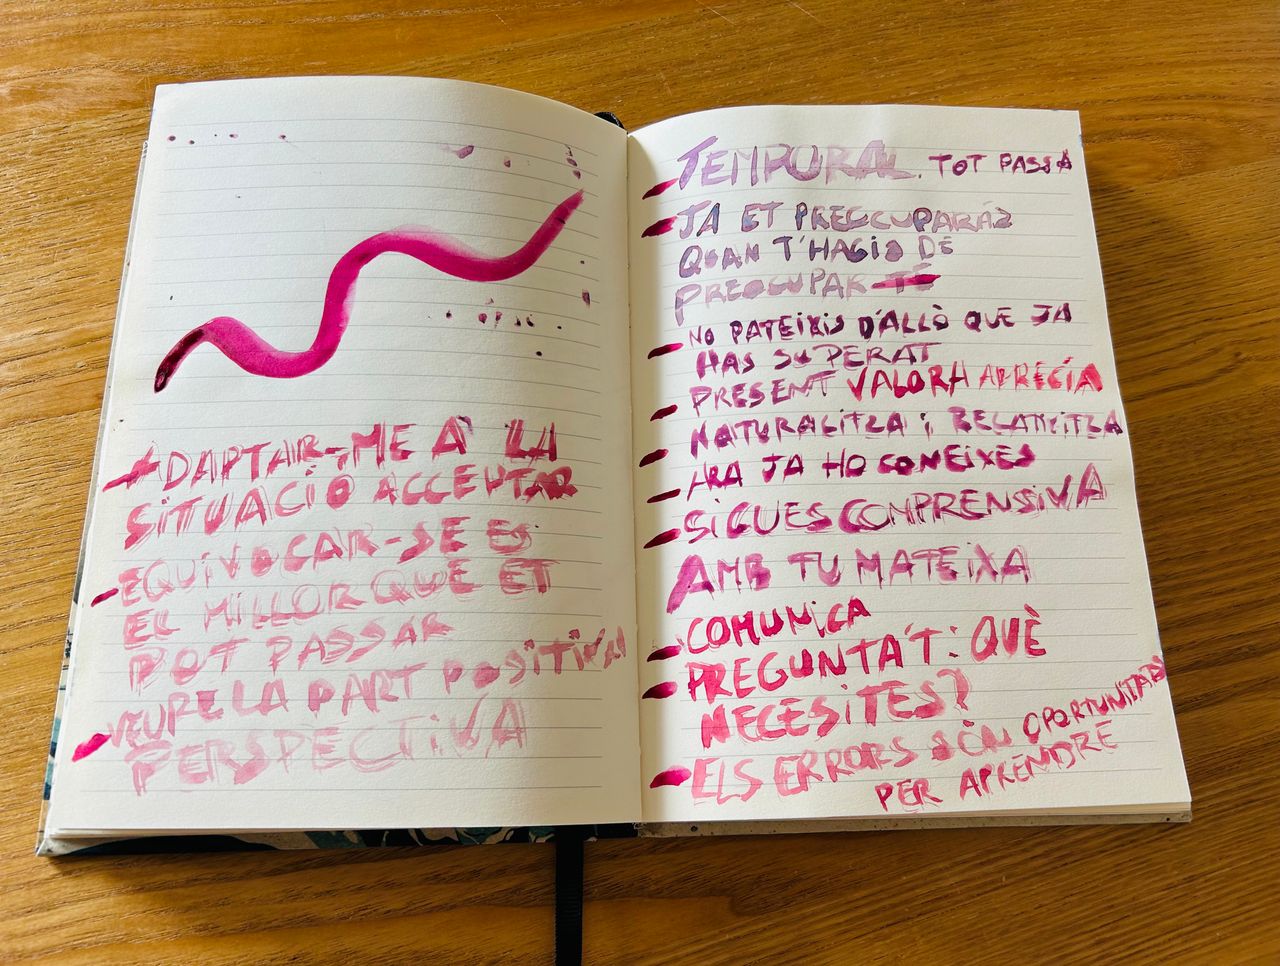 ADAPTAR-ME A LA
SITUACIÓ ACCEPTAR
- EQUIVOCAR-SE ES
EL MILLOR QUE ET
POT PASSAR
- VEURE LA PART POSITIVA
PERSPECTIVA
- TEMPORAL. TOT PASSA
- JA ET PREOCUPARÁS
QUAN T'HAGIS DE
PREOCUPAR-TE
- NO PATEIXIS D'ALLÒ QUE JA
HAS SUPERAT
- PRESENT VALORA APRECIA
- NATURALITZA i RELATIVITZA
- ARA JA HO CONEIXES
- SIGUES COMPRENSIVA
AMB TU MATEIXA
- COMUNICA
- PREGUNTA'T: QUÈ
NECESITES?
- ELS ERRORS SÓN OPORTUNITATS
PER APRENDRE